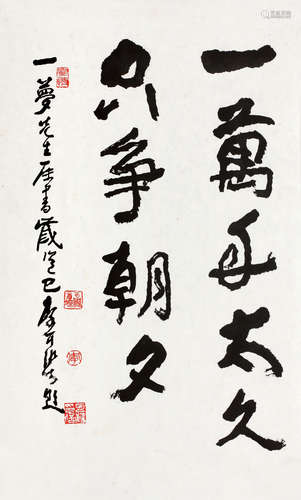 一萬年太久
只争朝夕
一夢先生屬書歲